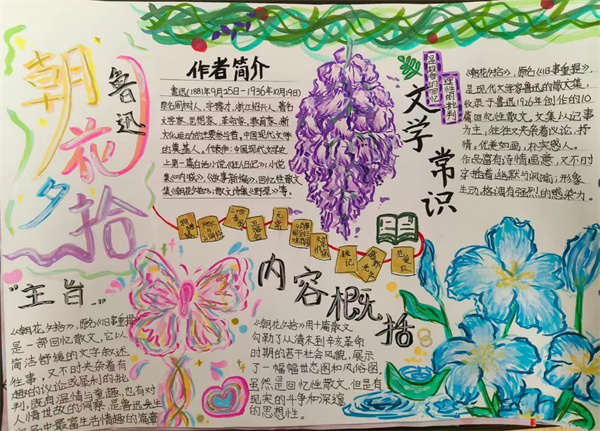 朝花夕拾
鲁迅
作者简介
鲁迅(1881年9月25日-1936年10月19日)
原名周树人,字豫才,浙江绍兴人,著名
文学家、思想家、革命家、教育家、新
文化运动的重要参与者,中国现代文学
的奠基人。代表作:中国现代文学史
上第一篇白话小说《狂人日记》,小说
集《呐喊》、《故事新编》,回忆性散文
集《朝花夕拾》,散文诗集《野草》等。
温馨的回忆
理性的批判
文学常识
《朝花夕拾》,原名《旧事重提》,
是现代文学家鲁迅的散文集,
收录了鲁迅1926年创作的10
篇回忆性散文。文集以记事
为主,往往又夹杂着议论、抒
情,优美如画,朴实感人。
作品富有诗情画意,又不时
穿插着幽默与风format;形象
生动,格调有强烈的感染力。
"主旨"
《朝花夕拾》,原名《旧事重提》
是一部回忆散文,它以
简洁舒缓的文字叙述
往事,又不时夹杂着有
趣的议论或犀利的批
判。既有温情与童趣,也有对
人情世故的洞察,是鲁迅先生
作品中最富生活情趣的篇章
内容概括
《朝花夕拾》用十篇散文
勾勒了从清末到辛亥革命
时期的若干社会风貌,展示
了一幅幅世态图和风俗图。
虽然是回忆性散文,但具有
现实的斗争和深邃
的思想性。